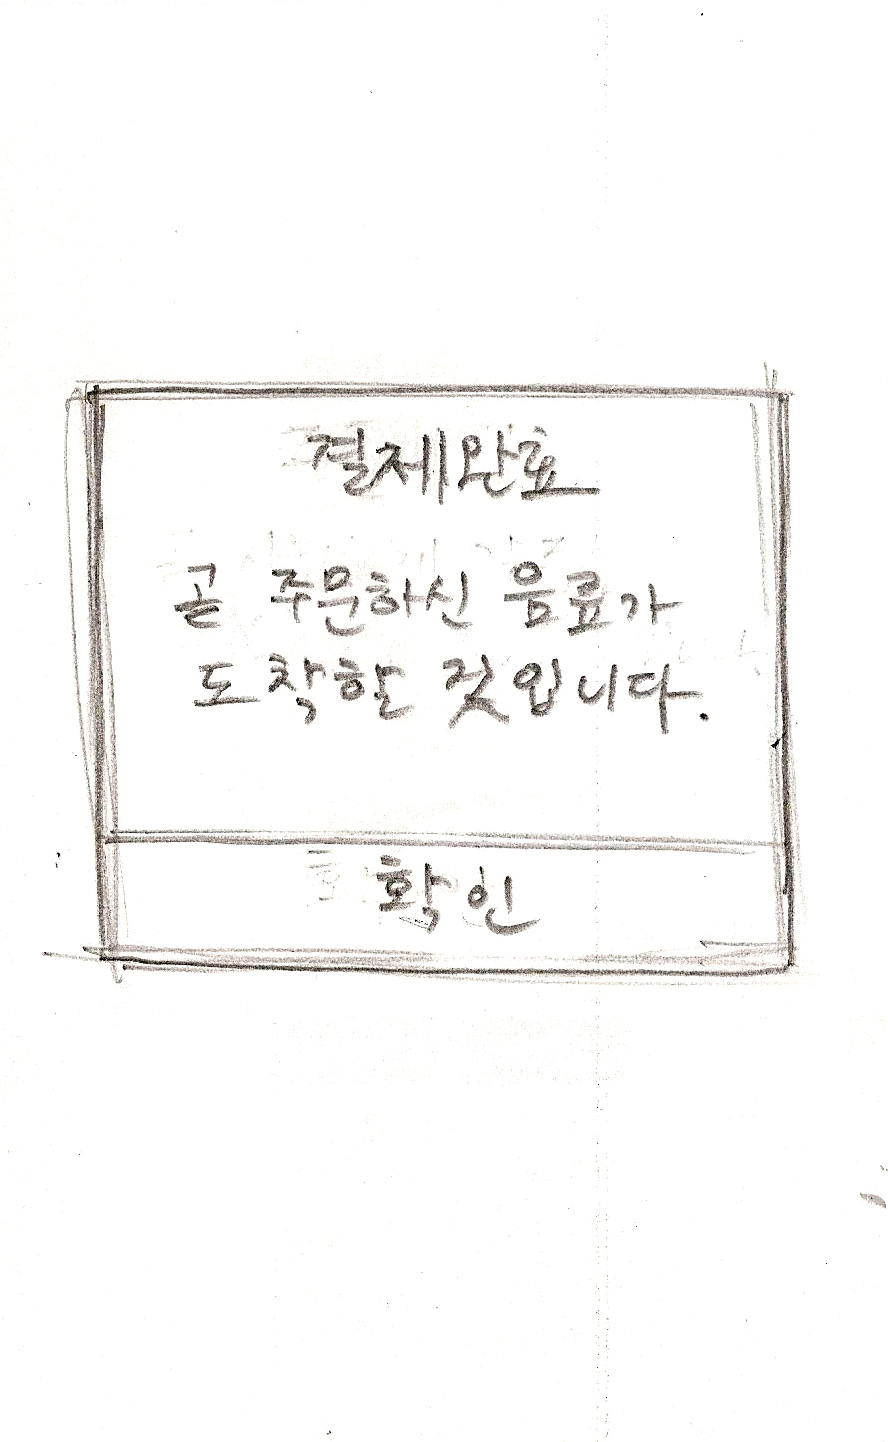 결제완료
곧 주문하신 음료가
도착할 것입니다.
확인